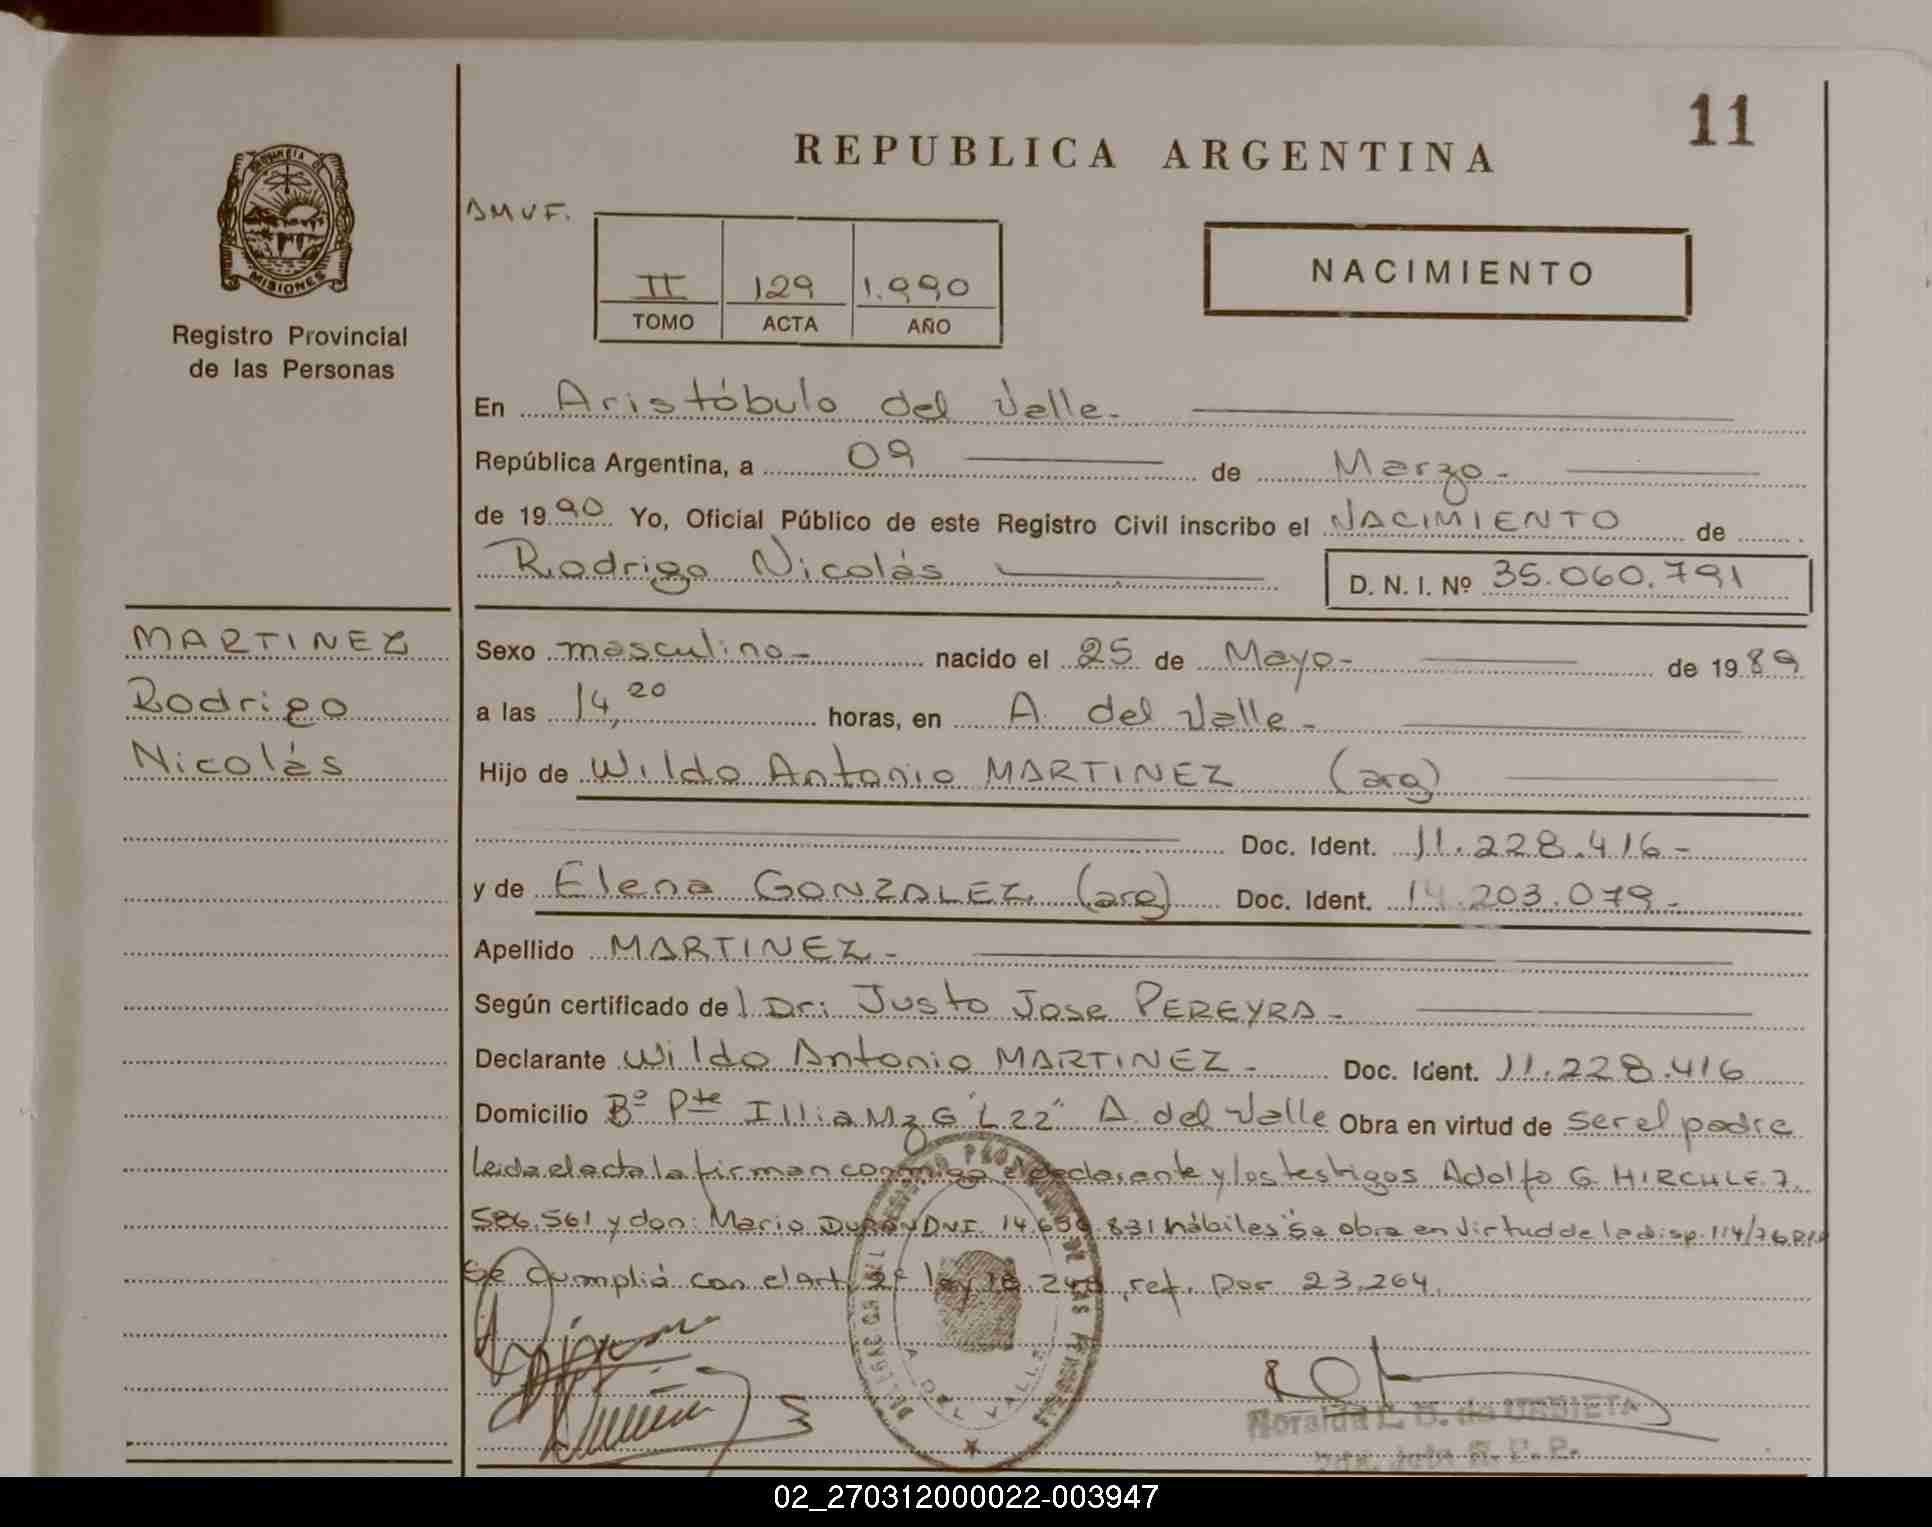 11
REPUBLICA ARGENTINA
PROVINCIA DE
MISIONES
Registro Provincial
de las Personas
II 129 1.990
TOMO ACTA AÑO
NACIMIENTO
En Aristóbulo del Valle.
República Argentina, a 09 de Marzo-
de 1990 Yo, Oficial Público de este Registro Civil inscribo el NACIMIENTO de
Rodrigo Nicolás D. N. I. Nº 35.060.791
MARTINEZ
Rodrigo
Nicolás
Sexo masculino- nacido el 25 de Mayo- de 1989
a las 14,20 horas, en A. del Valle-
Hijo de Wildo Antonio MARTINEZ (arg)
Doc. Ident. 11.228.416-
y de Elena GONZALEZ (arg) Doc. Ident. 14.203.079-
Apellido MARTINEZ-
Según certificado de l Dr: Justo Jose PEREYRA-
Declarante Wildo Antonio MARTINEZ- Doc. Ident. 11.228.416
Domicilio Bº Pte Illia Mz G "L 22" A. del Valle Obra en virtud de ser el padre
Leida el acta la firman conmigo e declarante y los testigos Adolfo G. HIRCHLE 7.
586.561 y don: Mario DURAN DNI 14.656.831 hábiles "Se obra en virtud de la disp. 114/76
Se cumplió con el art. 2º ley 18.248, ref. por 23.264.
A. DEL VALLE
Noralda L. B. de URBIETA
02_270312000022-003947